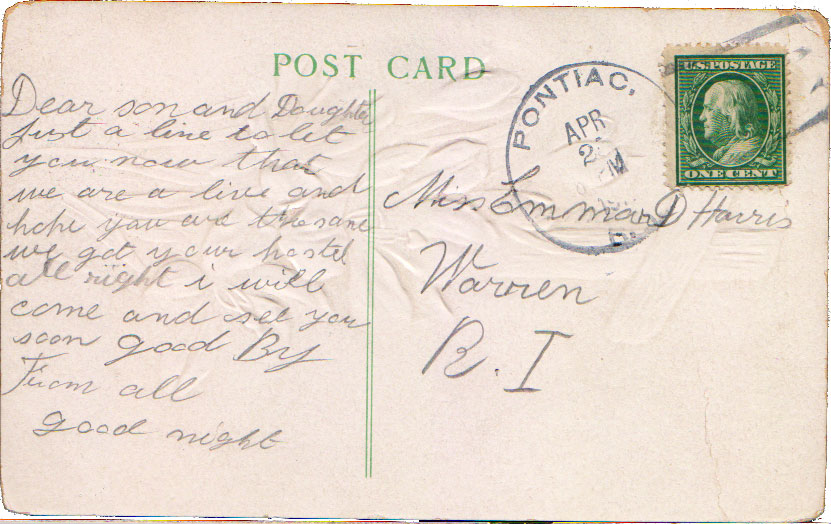 POST CARD
Dear son and Daughter
Just a line to let
you now that
we are a live and
hope you are the same
we got your postel
all right i will
come and see you
soon good By
From all
good night
PONTIAC,
APR
2
PM
R.
U.S. POSTAGE
ONE CENT
Miss Emma D Harris
Warren
R. I